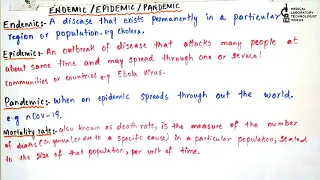 ENDEMIC/EPIDEMIC/PANDEMIC
MEDICAL
LABORATORY
TECHNOLOGIST
Endemic:- A disease that exists permanently in a particular
region or population. e.g cholera.
Epidemic:- An outbreak of disease that attacks many people at
about same time and may spread through one or several
communities or countries e.g Ebola virus.
Pandemic:- When an epidemic spreads through out the world.
e.g. nCOV-19.
Mortality rate:- also known as death rate, is the measure of the number
of deaths (in general, or due to a specific cause) in a particular population, scaled
to the size of that population, per unit of time.